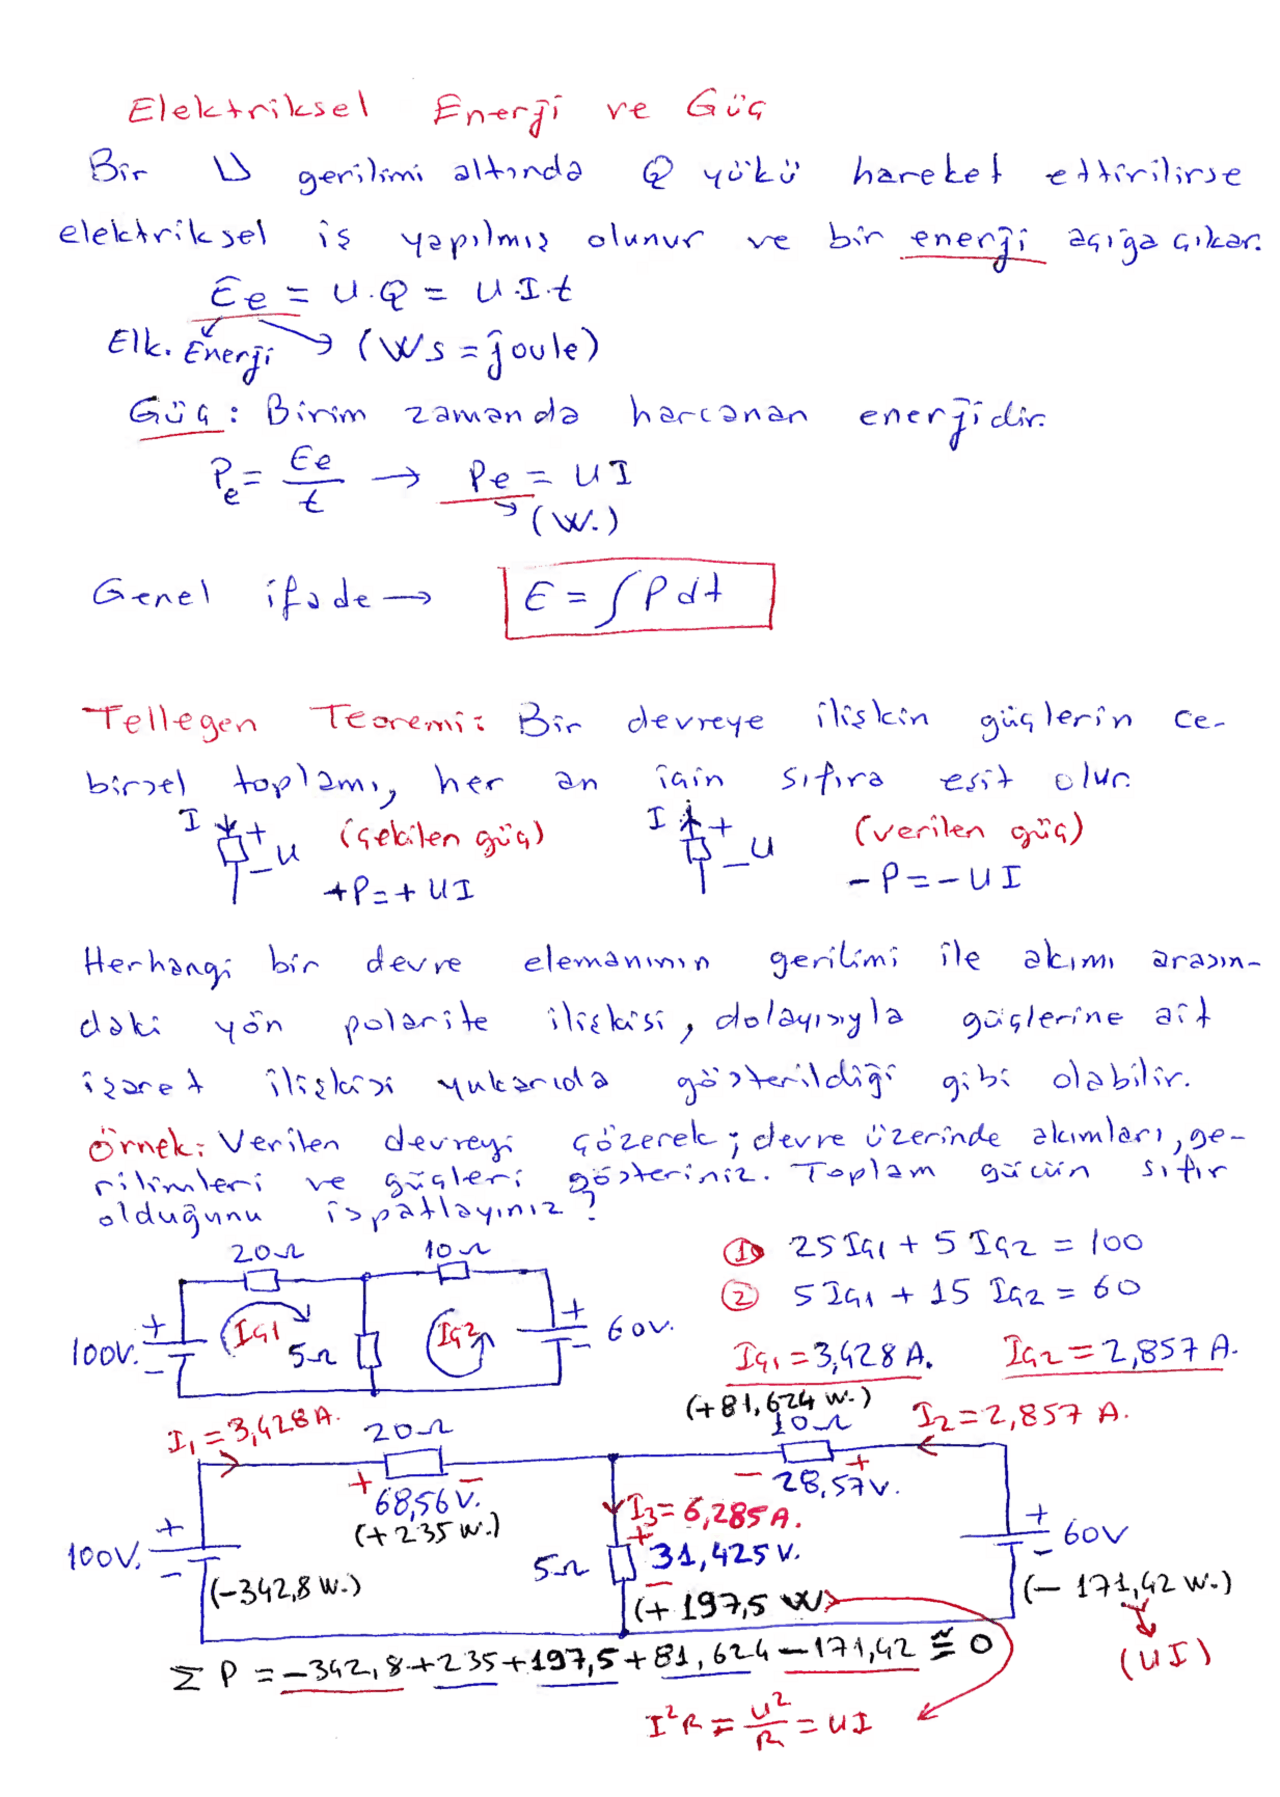 Elektriksel Enerji ve Güç
Bir U gerilimi altında Q yükü hareket ettirilirse
elektriksel iş yapılmış olunur ve bir enerji açığa çıkar.
Ee = U.Q = U.I.t
Elk. Enerji (Ws = joule)
Güç : Birim zamanda harcanan enerjidir.
Pe = Ee/t → Pe = UI
(W.)
Genel ifade → E = ∫ P dt
Tellegen Teoremi: Bir devreye ilişkin güçlerin ce-
birsel toplamı, her an için sıfıra eşit olur.
I + - U (çekilen güç) I + - U (verilen güç)
+P = + UI - P = - UI
Herhangi bir devre elemanının gerilimi ile akımı arasın-
daki yön polarite ilişkisi, dolayısıyla güçlerine ait
işaret ilişkisi yukarıda gösterildiği gibi olabilir.
Örnek: Verilen devreyi çözerek; devre üzerinde akımları, ge-
rilimleri ve güçleri gösteriniz. Toplam gücün sıfır
olduğunu ispatlayınız?
20Ω 10Ω
① 25 IG1 + 5 IG2 = 100
② 5 IG1 + 15 IG2 = 60
100V. + - IG1 5Ω IG2 + - 60V.
IG1 = 3,428 A. IG2 = 2,857 A.
(+81,624 W.)
I1 = 3,428 A. 20Ω 10Ω I2 = 2,857 A.
+ - - +
68,56 V. 28,57V.
(+235 W.)
I3 = 6,285 A.
100V. + - 5Ω + - 31,425 V. + - 60V
(-342,8 W.) (+ 197,5 W) (- 171,42 W.)
(UI)
Σ P = -342,8+235+197,5+81,624-171,42 ≅ 0
I²R = U²/R = UI